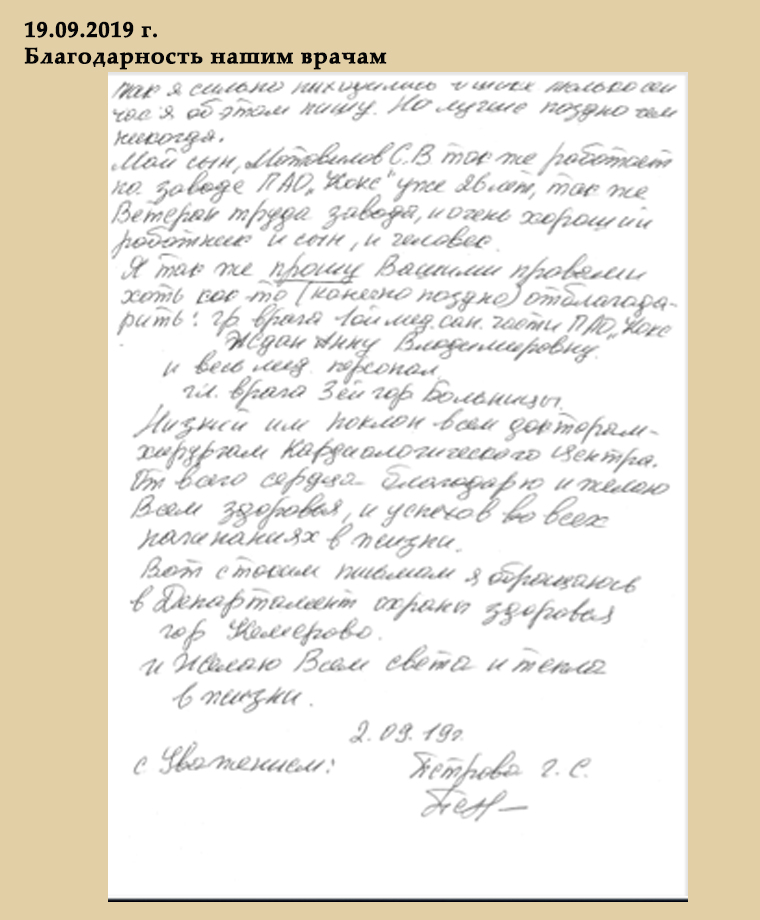 19.09.2019 г.
Благодарность нашим врачам
так я сильно только сей
час я об этом пишу. Но лучше поздно чем
никогда.
Мой сын, Мотовилов С.В так же работает
на заводе ПАО „Кокс" уже 26 лет, так же
Ветеран труда завода, и очень хороший
работник и сын, и человек.
Я так же прошу Вашими
хоть как-то (конечно поздно) отблагода-
рить: врача мед. сан. части ПАО „Кокс
Ждан Анну Владимировну.
и весь мед. персонал
гл. врача 3ей гор Больницы.
Низкий им поклон всем докторам-
хирургам Кардиологического Центра.
От всего сердца благодарю и желаю
Всем здоровья, и успехов во всех
начинаниях в жизни.
Вот с таким письмом я обращаюсь
в Департамент охраны здоровья
гор Кемерово.
и Желаю Всем света и тепла
в жизни.
2.09.19г
с Уважением:
Петрова Г. С.